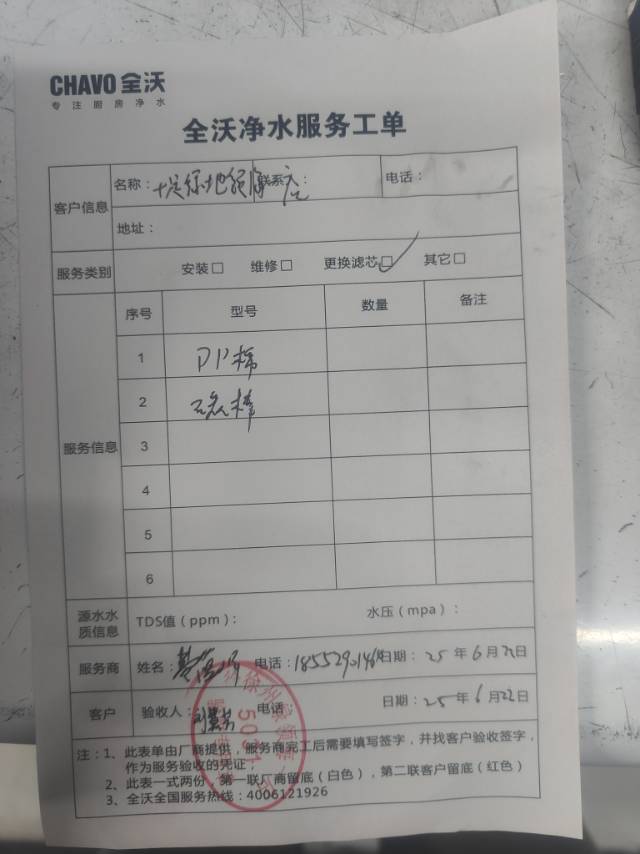 CHAVO 全沃
专注厨房净水
全沃净水服务工单
客户信息 名称: 联系人: 电话:
地址:
服务类别 安装□ 维修□ 更换滤芯□✓ 其它□
服务信息 序号 型号 数量 备注
1 PP棉
2
3
4
5
6
源水水质信息 TDS值(ppm): 水压(mpa):
服务商 姓名: 电话: 日期: 25 年 6 月 22 日
客户 验收人: 电话 日期: 25 年 6 月 22 日
注:1、此表单由厂商提供,服务商完工后需要填写签字,并找客户验收签字,
作为服务验收的凭证;
2、此表一式两份,第一联厂商留底(白色),第二联客户留底(红色)
3、全沃全国服务热线:4006121926